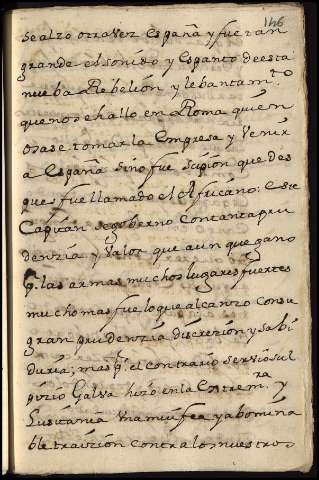 146
se alzo otra vez españa y fue tan
grande el sonido y espanto de esta
nueba Rebelion y lebantamto
que no se hallo en Roma quien
osase tomar la Empresa y Venir
a España sino fue scipion que des
que fue llamado el Africano: este
Capitan se goberno con tanta pru
denzia y Valor que aunque gano
por las armas muchos lugares fuertes
mucho mas fue lo que alcanzo con su
gran prudenzia discrezion y sabi
duria; mas por el contrario servio sul
pizio Galva hizo en la Estremra y
Lusitania Una mui fea y abomina
ble traizion contra los nuestros